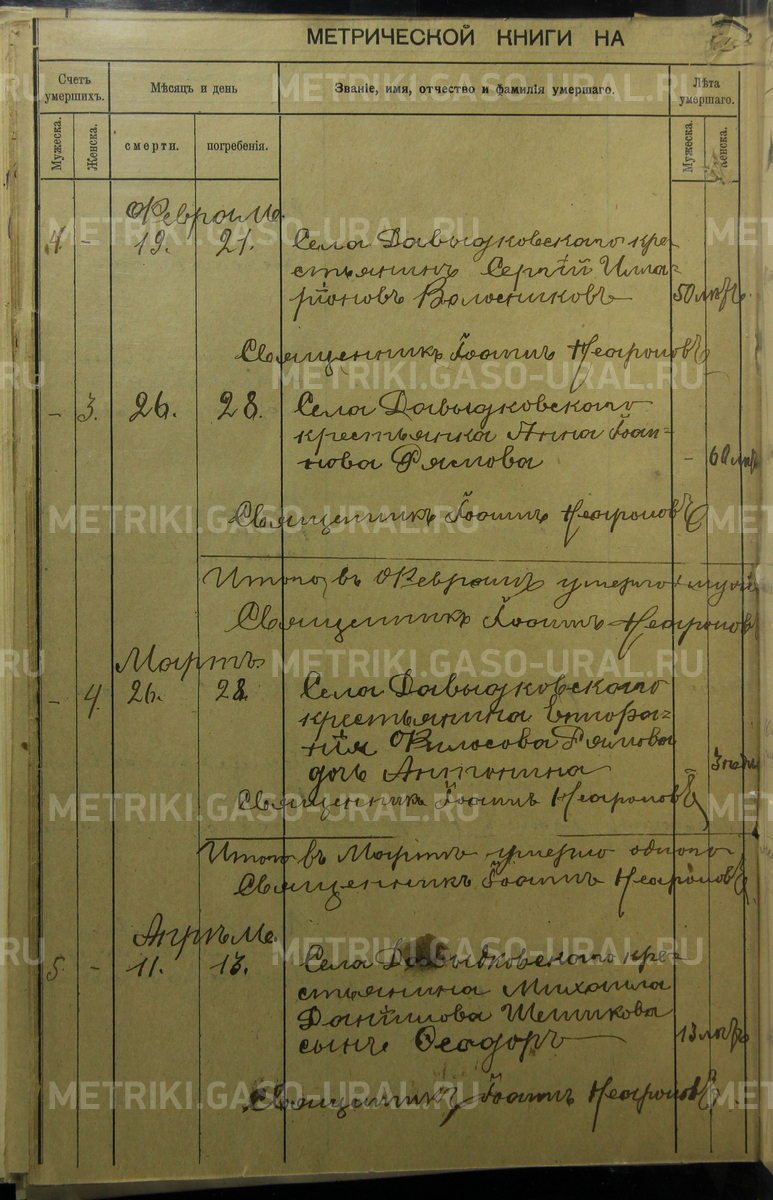 МЕТРИЧЕСКОЙ КНИГИ НА
Счетъ умершихъ.
Мѣсяцъ и день
Званіе, имя, отчество и фамилія умершаго.
Лѣта умершаго.
Мужеска.
Женска.
смерти.
погребенія.
Мужеска.
Женска.
Февраль.
4 - 19. 21. Села Давыдковскаго кре-
стьянинъ Сергій Илла-
ріоновъ Волосниковъ 50 лѣтъ.
Священникъ Іоаннъ
- 3. 26. 28. Села Давыдковскаго
крестьянка Анна Іоан-
нова - 60 лѣтъ
Священникъ Іоаннъ
Итого въ Февралѣ умерло
Священникъ Іоаннъ
Мартъ
- 4 26. 28. Села Давыдковскаго
крестьянина
дочь Антонина 3 недѣли
Священникъ Іоаннъ
Итого въ Мартѣ умерло одного
Священникъ Іоаннъ
Апрѣль.
5 - 11. 13. Села Давыдковскаго кре-
стьянина Михаила
Даніилова
сынъ Ѳеодоръ 13 лѣтъ
Священникъ Іоаннъ
METRIKI.GASO-URAL.RU